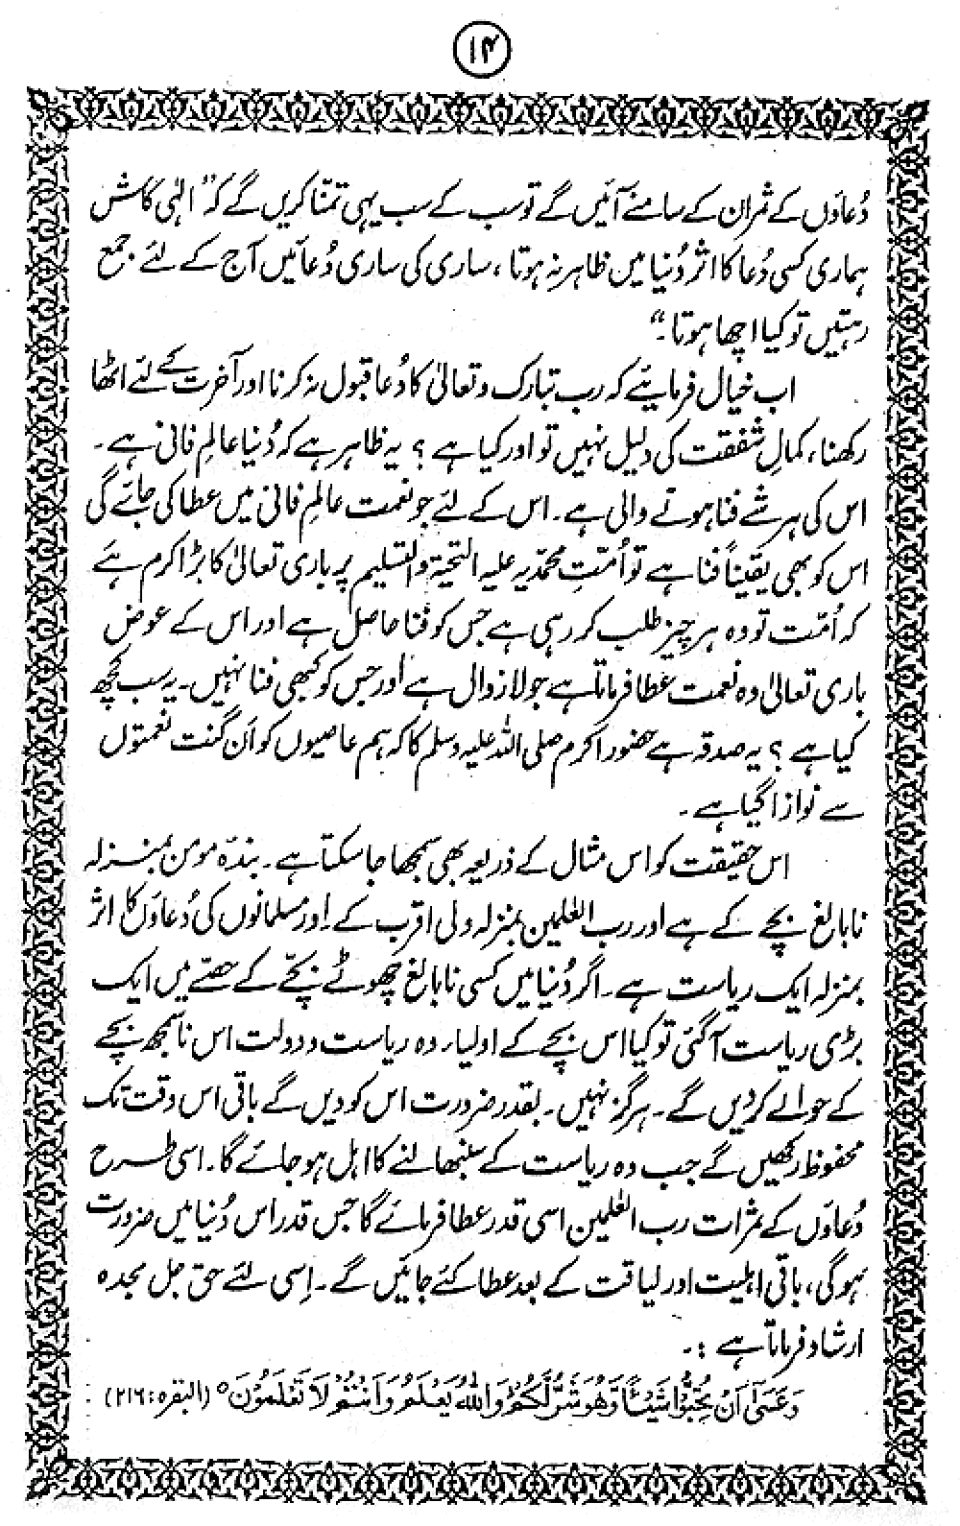 ۱۴
دُعاؤں کے ثمران کے سامنے آئیں گے تو سب کے سب یہی تمنّا کریں گے کہ ”الٰہی کاش
ہماری کسی دُعا کا اثر دُنیا میں ظاہر نہ ہوتا، ساری کی ساری دُعائیں آج کے لئے جمع
رہتیں تو کیا اچھا ہوتا۔“
اب خیال فرمائیے کہ رب تبارک و تعالیٰ کا دُعا قبول نہ کرنا اور آخرت کے لئے اٹھا
رکھنا، کمالِ شفقت کی دلیل نہیں تو اور کیا ہے ؟ یہ ظاہر ہے کہ دُنیا عالمِ فانی ہے۔
اس کی ہر شے فنا ہونے والی ہے۔ اس کے لئے جو نعمت عالمِ فانی میں عطا کی جائے گی
اس کو بھی یقیناً فنا ہے تو اُمّتِ محمّدیہ علیہ التحیۃ والتسلیم پر باری تعالیٰ کا بڑا کرم ہے
کہ اُمّت تو وہ ہر چیز طلب کر رہی ہے جس کو فنا حاصل ہے اور اس کے عوض
باری تعالیٰ وہ نعمت عطا فرماتا ہے جو لازوال ہے اور جس کو کبھی فنا نہیں۔ یہ سب کچھ
کیا ہے ؟ یہ صدقہ ہے حضور اکرم صلی اللہ علیہ وسلم کا کہ ہم عاصیوں کو اَن گنت نعمتوں
سے نوازا گیا ہے۔
اس حقیقت کو اس مثال کے ذریعہ بھی سمجھا جا سکتا ہے۔ بندہ مومن بمنزلہ
نابالغ بچے کے ہے اور رب العٰلمین بمنزلہ ولی اقرب کے۔ اور مسلمانوں کی دُعاؤں کا اثر
بمنزلہ ایک ریاست ہے۔ اگر دُنیا میں کسی نابالغ چھوٹے بچّے کے حصّے میں ایک
بڑی ریاست آگئی تو کیا اس بچے کے اولیاء وہ ریاست و دولت اس ناسمجھ بچے
کے حوالے کر دیں گے۔ ہرگز نہیں۔ بقدر ضرورت اس کو دیں گے باقی اس وقت تک
محفوظ رکھیں گے جب وہ ریاست کے سنبھالنے کا اہل ہو جائے گا۔ اسی طرح
دُعاؤں کے ثمرات رب العٰلمین اسی قدر عطا فرمائے گا جس قدر اس دُنیا میں ضرورت
ہوگی، باقی اہلیت اور لیاقت کے بعد عطا کئے جائیں گے۔ اِسی لئے حق جل مجدہ
ارشاد فرماتا ہے :۔
وَعَسٰٓى اَنْ تُحِبُّوْا شَیْئًا وَّهُوَ شَرٌّ لَّكُمْ وَاللّٰهُ یَعْلَمُ وَاَنْتُمْ لَا تَعْلَمُوْنَ ○ (البقرہ:۲۱۶)